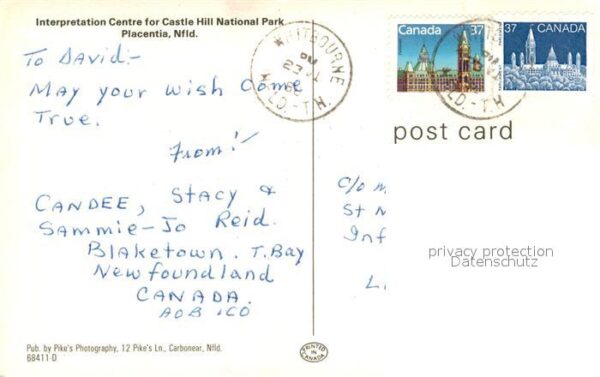 Interpretation Centre for Castle Hill National Park
Placentia, Nfld.
To David:-
May your wish come
True.
From:-
CANDEE, Stacy &
Sammie-Jo Reid.
Blaketown. T. Bay
Newfoundland
CANADA.
A0B 1C0
Pub. by Pike's Photography, 12 Pike's Ln., Carbonear, Nfld.
68411-D
PRINTED IN CANADA
WHITBOURNE
PM
NFLD.-T.N.
Canada 37
37 CANADA
post card
c/o
St
Inf
L
privacy protection
Datenschutz